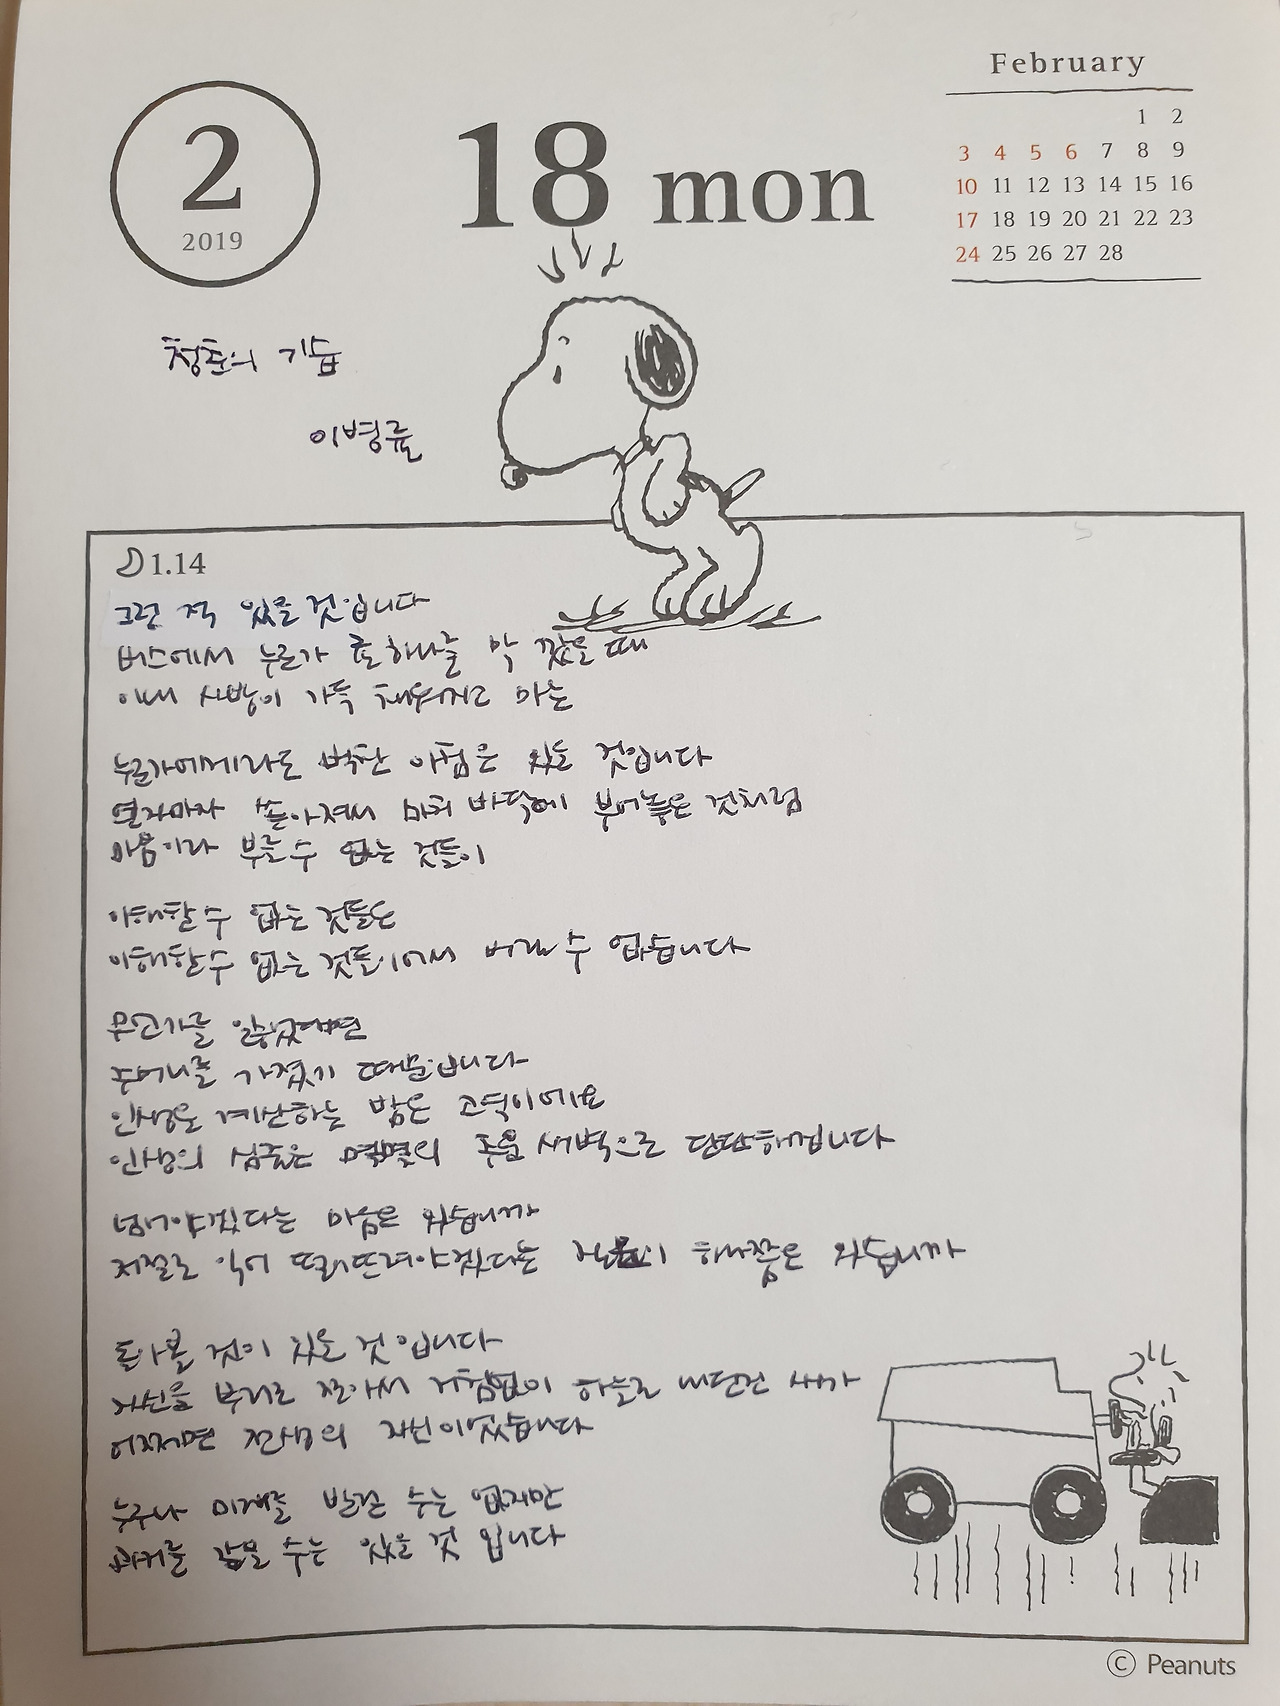 February
2
2019
18 mon
1 2
3 4 5 6 7 8 9
10 11 12 13 14 15 16
17 18 19 20 21 22 23
24 25 26 27 28
청춘의 기습
이병률
1.14
그런 적 있을 것입니다
버스에서 누군가 귤 하나를 막 깠을 때
이내 사방이 가득 채워지고 마는
누군가에게라도 벅찬 아침은 있을 것입니다
열자마자 쏟아져서 마치 바닥에 부어놓은 것처럼
마음이라 부를 수 없는 것들이
이해할 수 없는 것들은
이해할 수 없는 것들이어서 버릴 수 없습니다
무언가를 잃었다면
주머니를 가졌기 때문입니다
인생을 계산하는 밤은 고역이에요
인생의 심줄은 몇몇의 추운 새벽으로 단단해집니다
넘어야겠다는 마음은 있습니까
저절로 익어 떨어뜨려야겠다는 질문이 하나쯤은 있습니까
돌아볼 것이 있을 것입니다
자신을 부리로 쪼아서 거침없이 하늘로 내던진 새가
어쩌면 전생의 자신이었습니다
누구나 미래를 빌릴 수는 없지만
과거를 갚을 수는 있을 것 입니다
© Peanuts